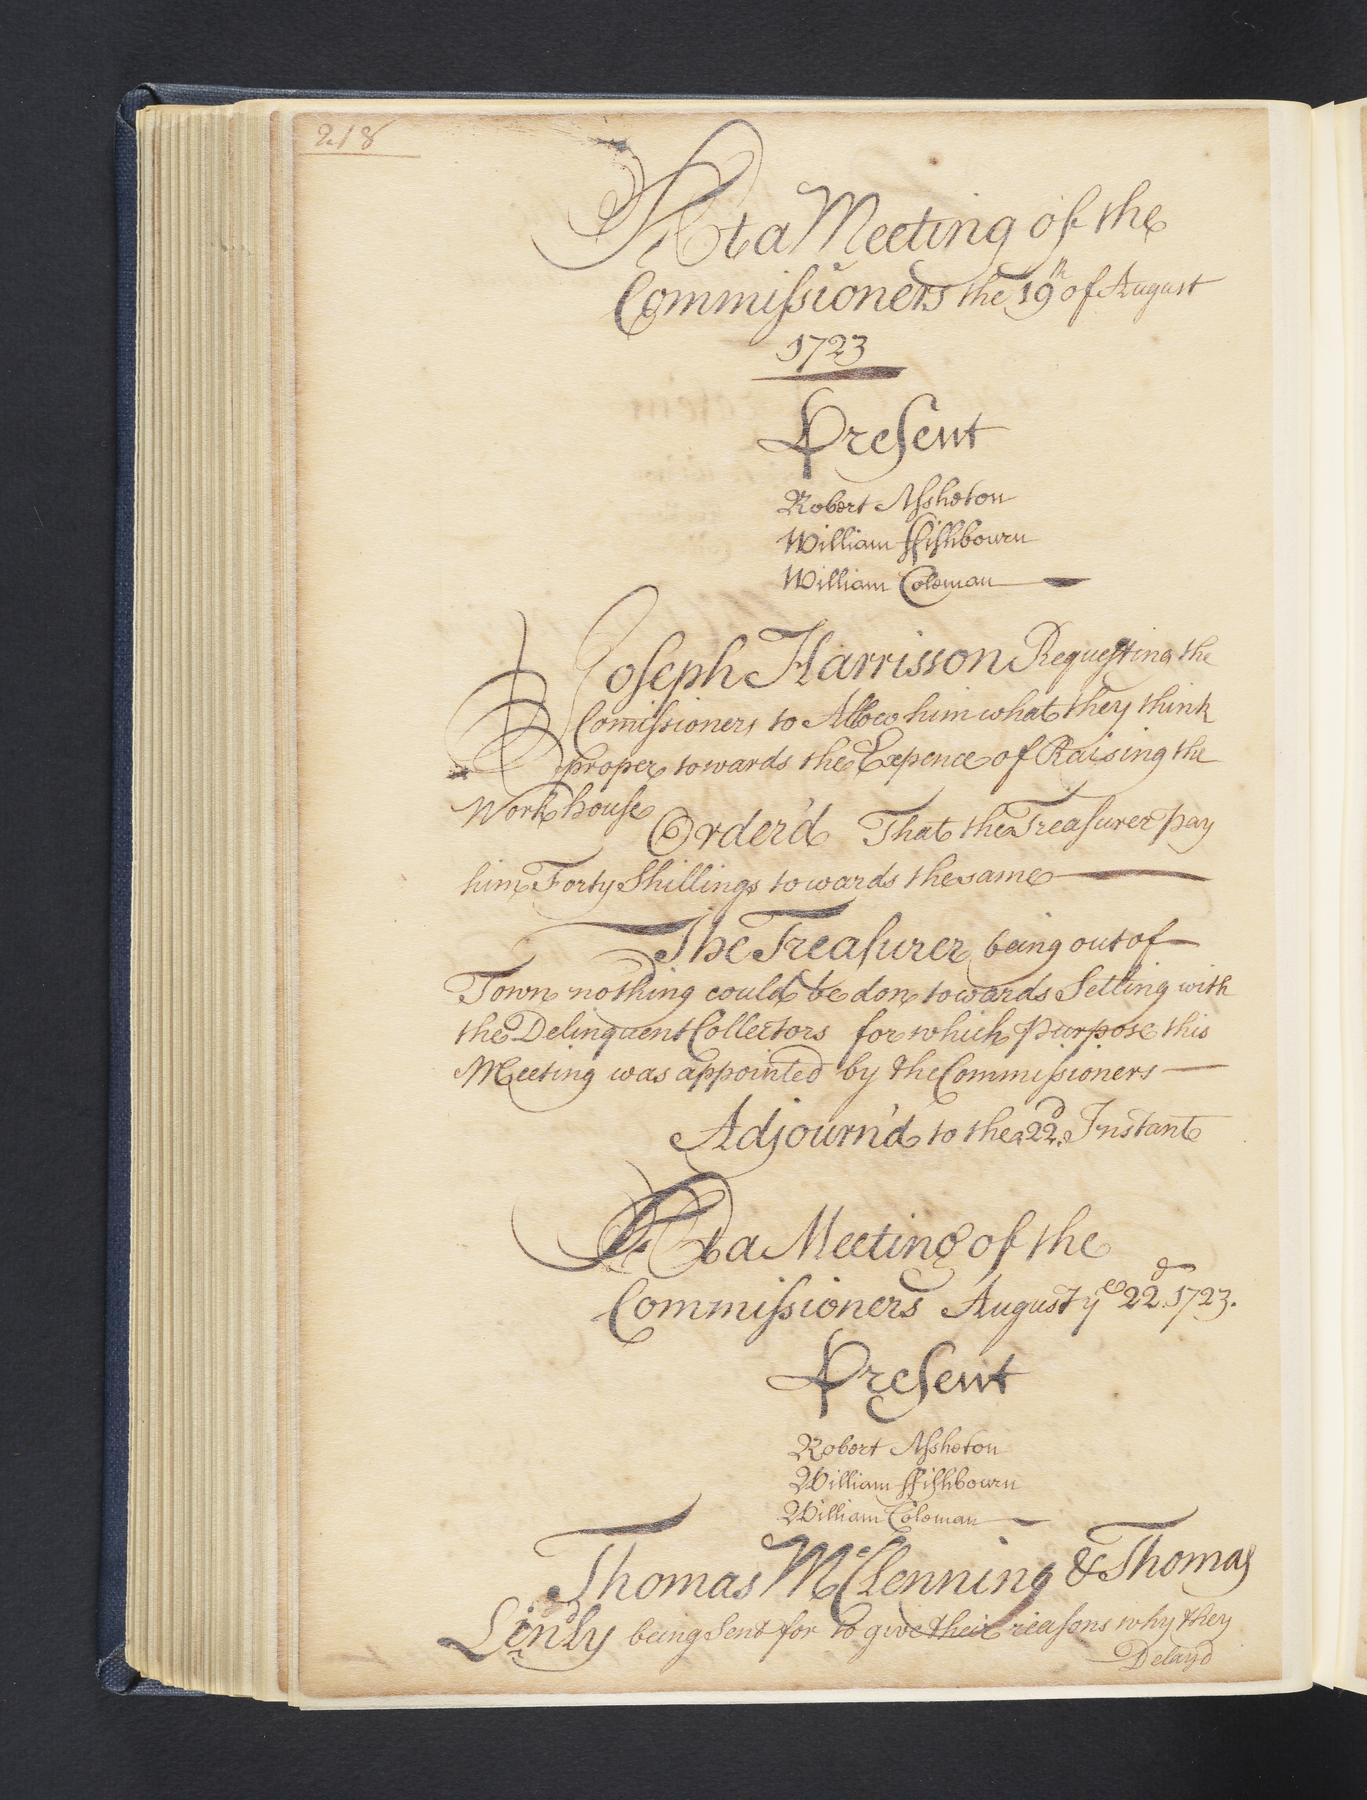 218
At a Meeting of the
Commissioners the 19th of August
1723
Present
Robert Assheton
William ffishbourn
William Coleman
Joseph Harrisson Requesting the
Comissioners to Allow him what they think
proper towards the Expence of Raising the
Workhouse
Order'd That the Treasurer pay
him Forty Shillings towards the same
The Treasurer being out of
Town nothing could be don towards Setling with
the Delinquent Collectors for which Purpose this
Meeting was appointed by the Commissioners
Adjourn'd to the 22d Instant
At a Meeting of the
Commissioners August ye 22d 1723.
Present
Robert Assheton
William ffishbourn
William Coleman
Thomas McClenning & Thomas
Lindly being Sent for to give their reasons why they
Delayd